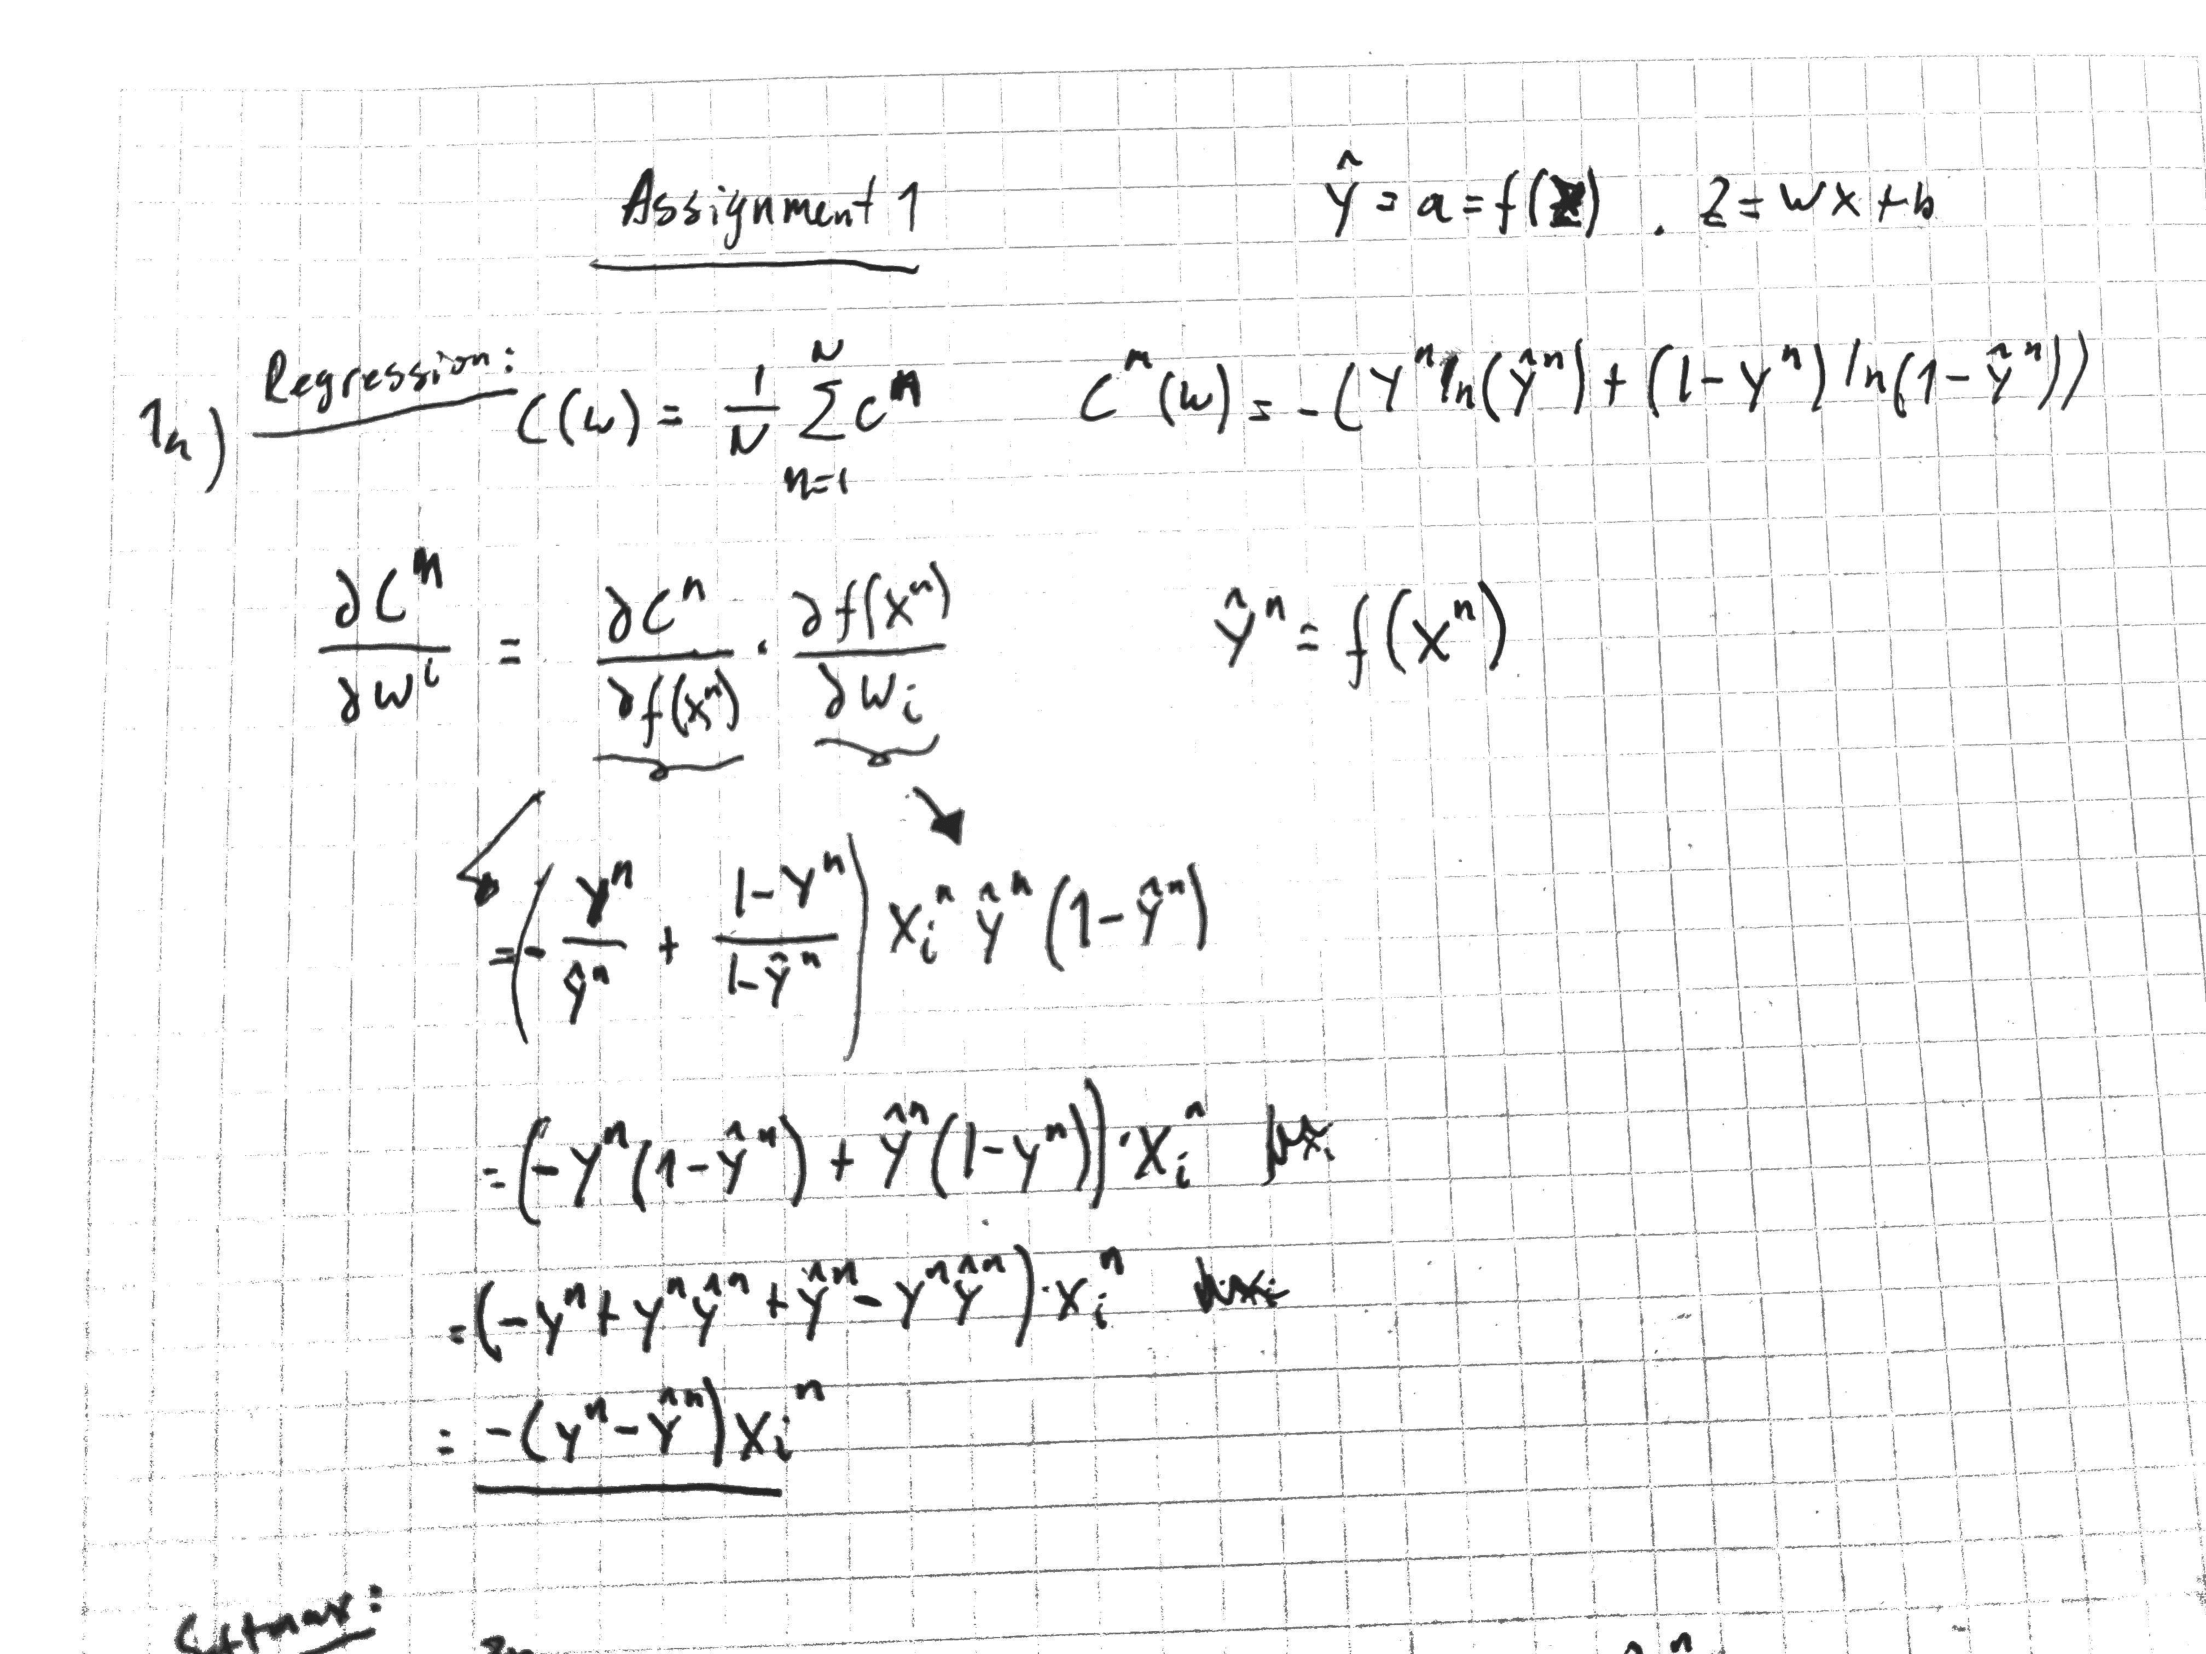 Assignment 1
ŷ = a = f(z) . z = wx + b
1a) Regression: C(w) = 1/N Σ_{n=1}^{N} C^n C^n(w) = -(y^n ln(ŷ^n) + (1-y^n) ln(1-ŷ^n))
∂C^n/∂w^i = ∂C^n/∂f(x^n) · ∂f(x^n)/∂w_i ŷ^n = f(x^n)
= (-y^n/ŷ^n + (1-y^n)/(1-ŷ^n)) x_i^n ŷ^n (1-ŷ^n)
= (-y^n(1-ŷ^n) + ŷ^n(1-y^n)) · x_i^n
= (-y^n + y^n ŷ^n + ŷ^n - y^n ŷ^n) · x_i^n
= -(y^n - ŷ^n) x_i^n
Softmax: